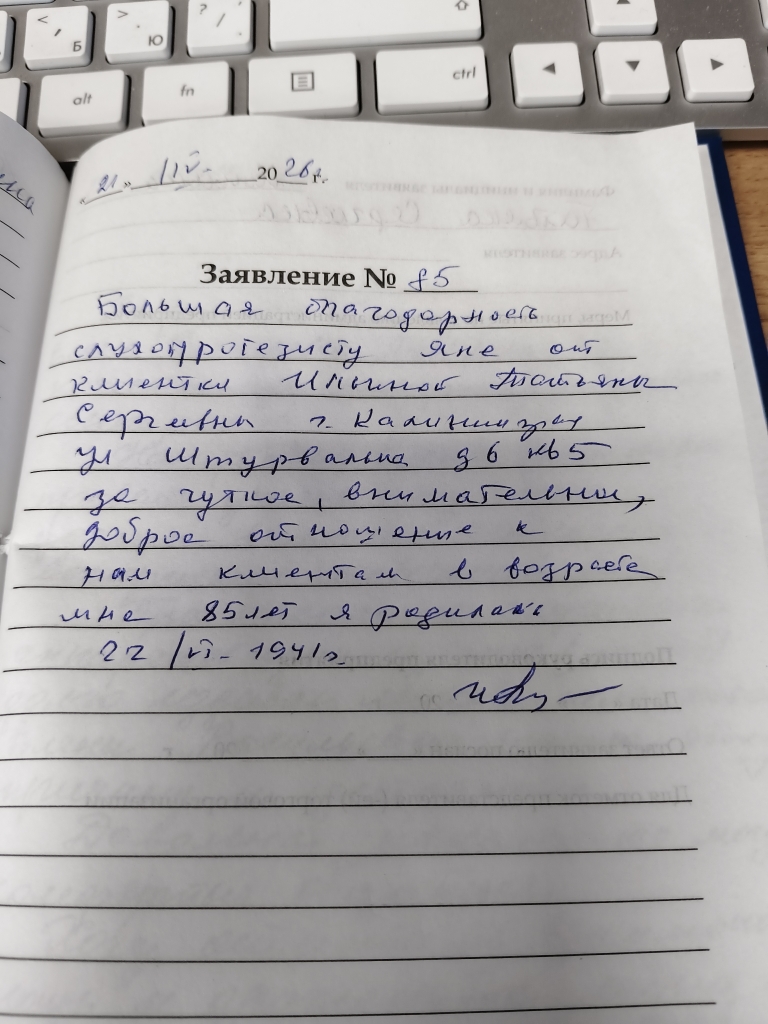 < , Б
> . Ю
? / .
⇧
alt
fn
ctrl
« 21 » IV- 20 26 г.
Заявление № 85
Большая благодарность
слухопротезисту Яне от
клиентки Ильиной Татьяны
Сергевны г. Калининград
ул Штурвальна д 6 кв 5
за чуткое, внимательное,
доброе отношение к
нам клиентам в возрасте
мне 85 лет я родилась
22 /VI- 1941г.